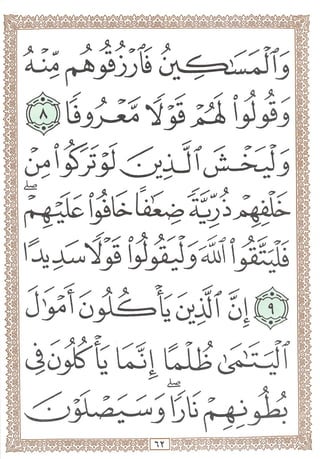 وَٱلْمَسَٰكِينُ فَٱرْزُقُوهُم مِّنْهُ
وَقُولُوا۟ لَهُمْ قَوْلًا مَّعْرُوفًا ٨
وَلْيَخْشَ ٱلَّذِينَ لَوْ تَرَكُوا۟ مِنْ
خَلْفِهِمْ ذُرِّيَّةً ضِعَٰفًا خَافُوا۟ عَلَيْهِمْ ۖ
فَلْيَتَّقُوا۟ ٱللَّهَ وَلْيَقُولُوا۟ قَوْلًا سَدِيدًا
٩ إِنَّ ٱلَّذِينَ يَأْكُلُونَ أَمْوَٰلَ
ٱلْيَتَٰمَىٰ ظُلْمًا إِنَّمَا يَأْكُلُونَ فِى
بُطُونِهِمْ نَارًا ۖ وَسَيَصْلَوْنَ
٦٢